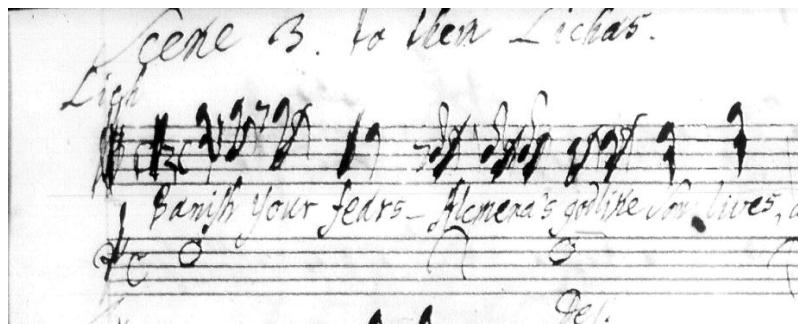 Scene 3. to them Lichas.
Lich
Banish your fears – Alcmena's godlike Son lives,
Dej.